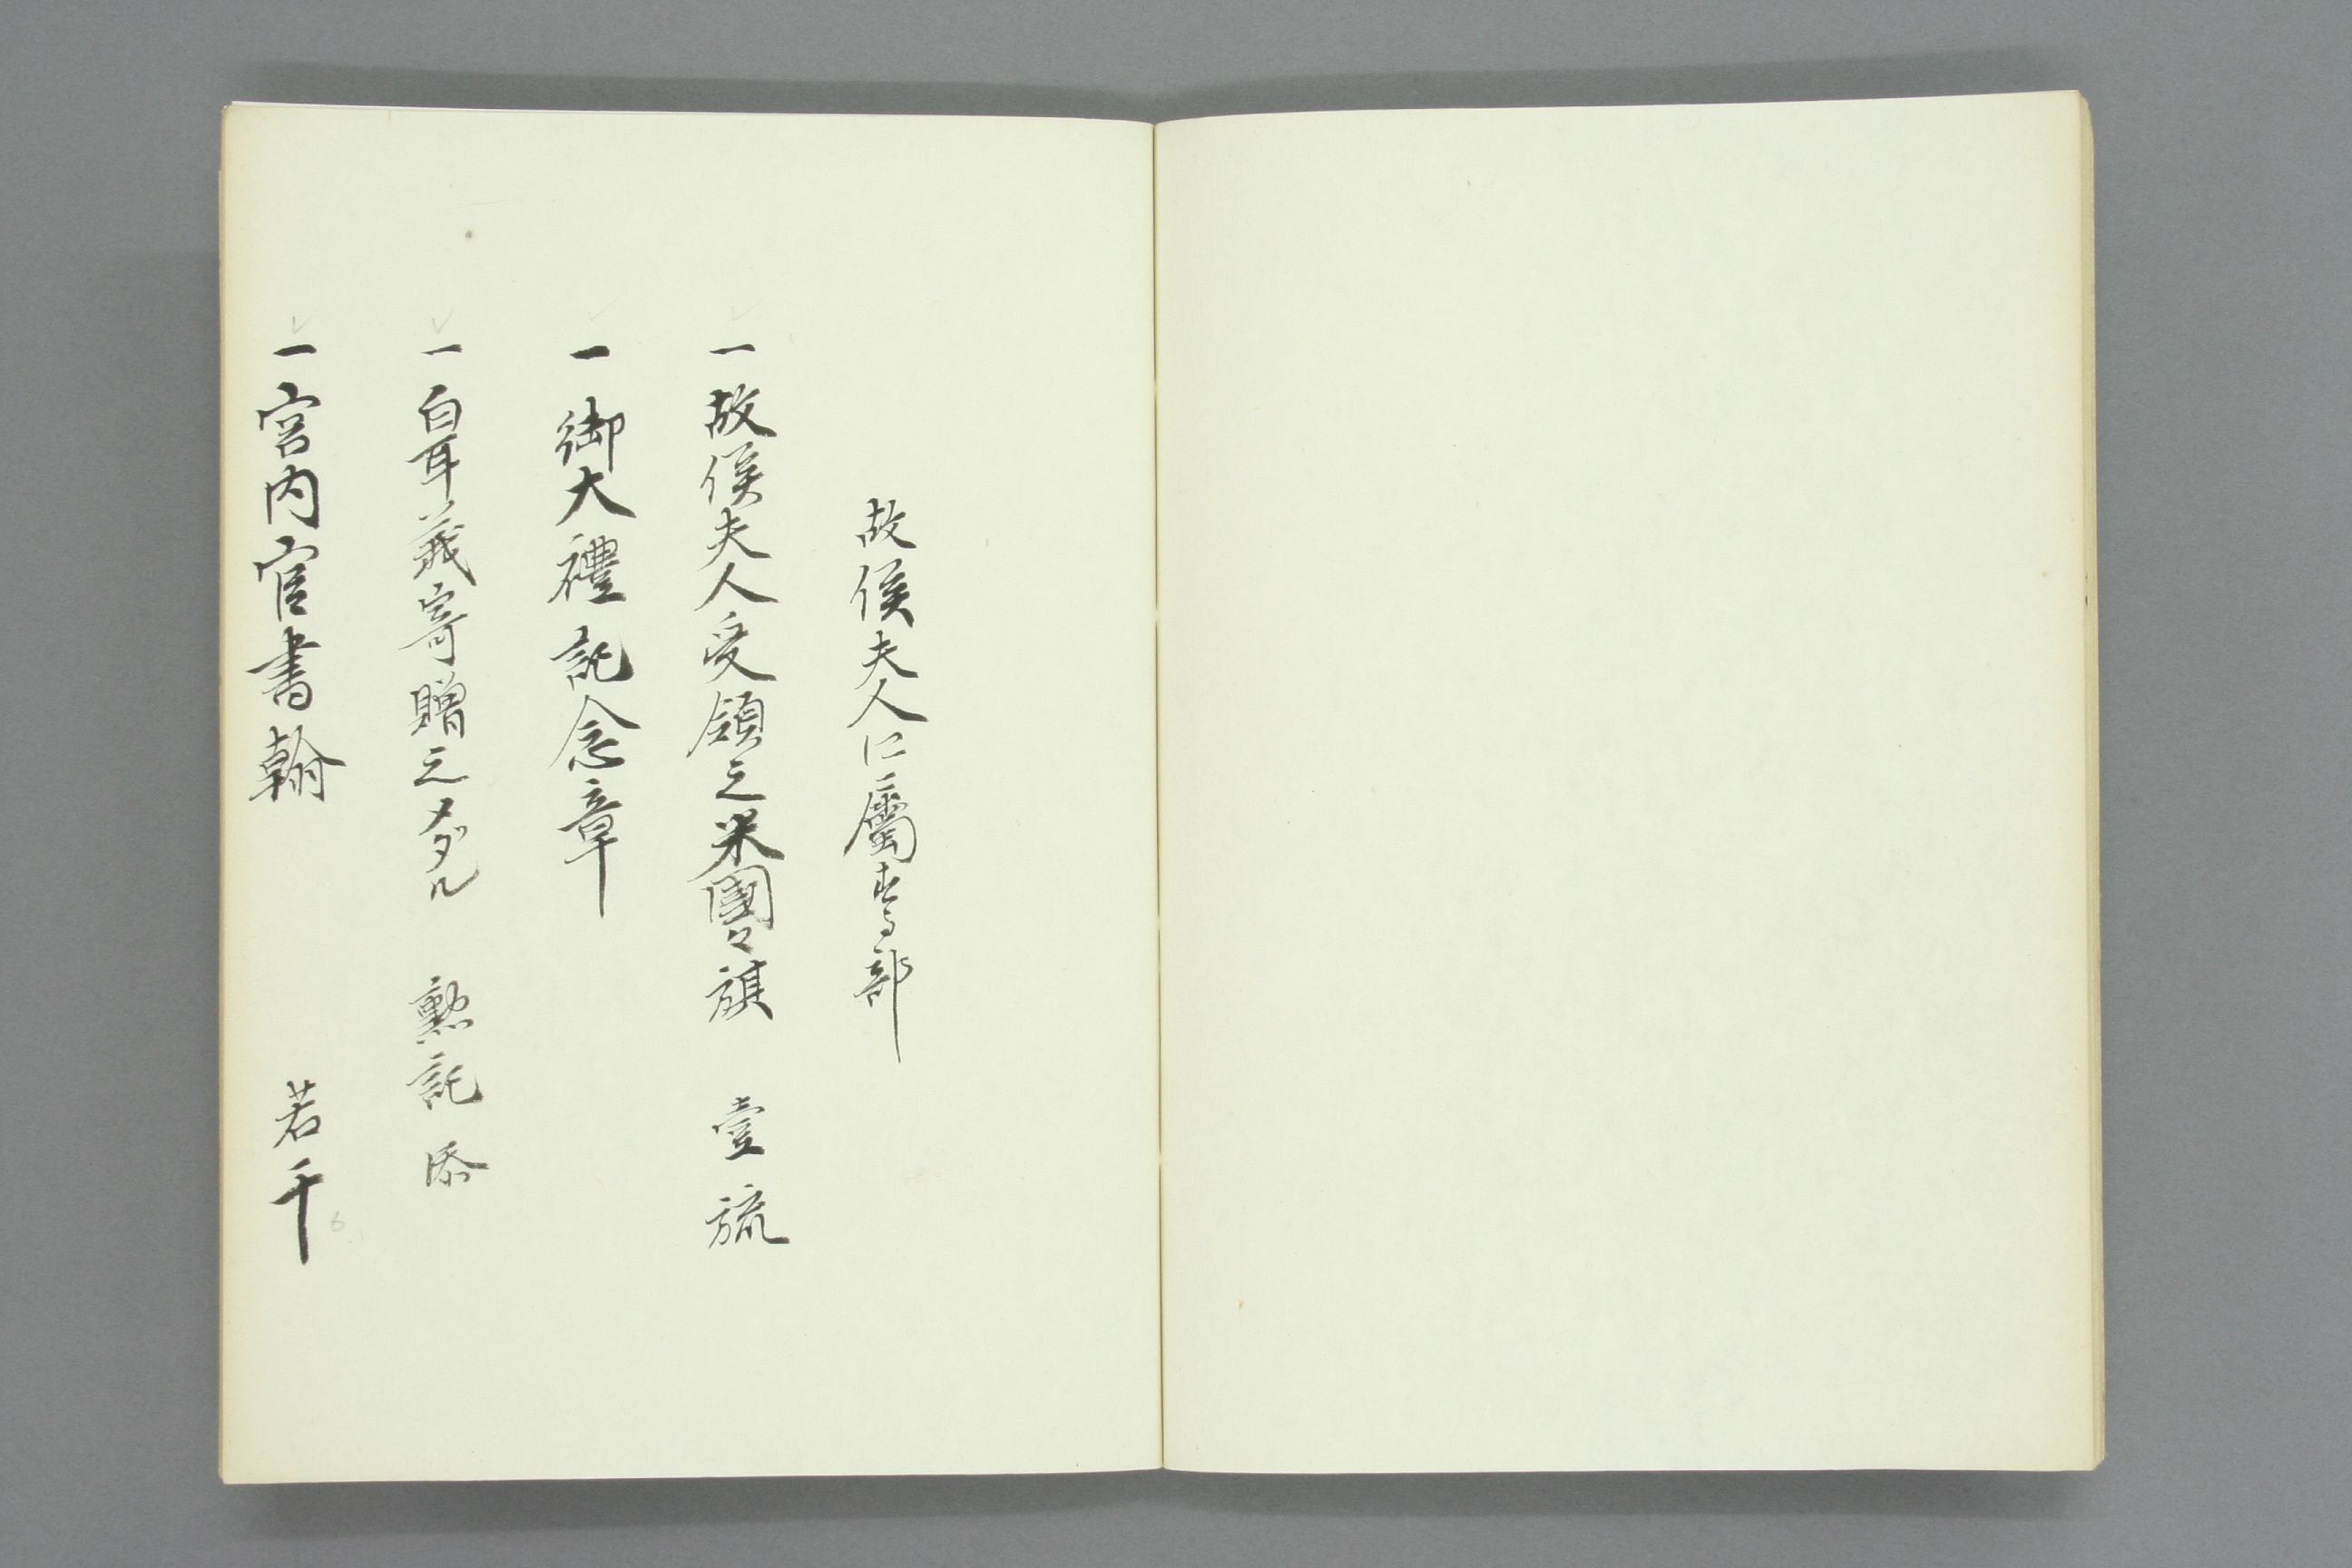 故侯夫人に屬する部
一 故侯夫人受領之米國々旗 壹旒
一 御大禮記念章
一 白耳義寄贈之メダル 勲記添
一 宮内官書翰 若干
6